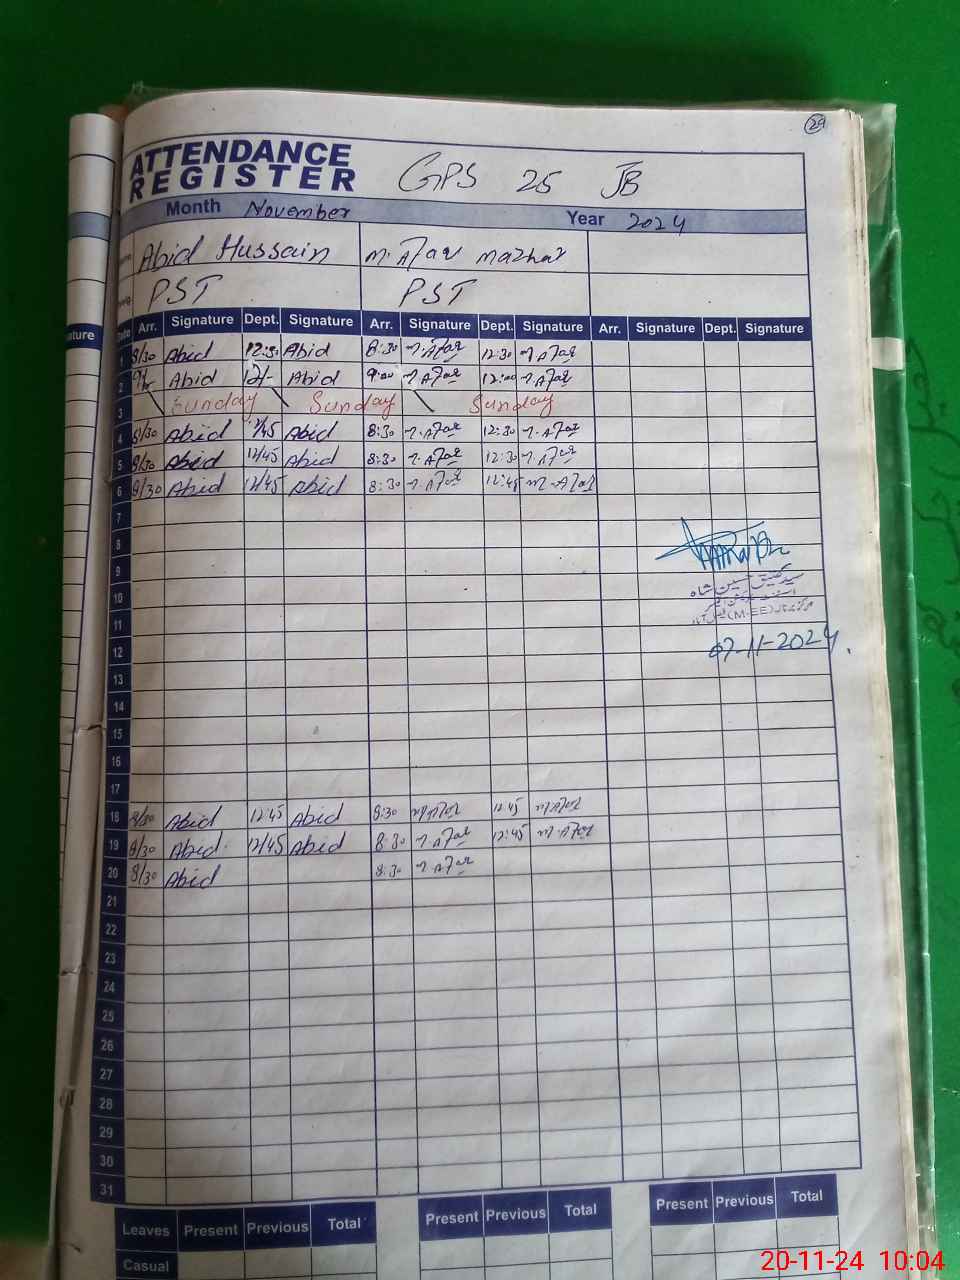 29
ATTENDANCE
REGISTER
GPS 25 JB
Month November Year 2024
Abid Hussain M. Afar Mazhar
PST PST
ature
Date Arr. Signature Dept. Signature Arr. Signature Dept. Signature Arr. Signature Dept. Signature
1 8/30 Abid 12:30 Abid 8:30 M. Afar 12:30 M. Afar
2 Abid 12/- Abid 9:00 M. Afar 12:00 M. Afar
3 Sunday Sunday Sunday
4 8/30 Abid Abid 8:30 M. Afar 12:30 M. Afar
5 8/30 Abid 12/45 Abid 8:30 M. Afar 12:30 M. Afar
6 8/30 Abid 12/45 Abid 8:30 M. Afar 12:45 M. Afar
7
8
9
10
سید حسین شاہ
11
(M-EE)
12
07-11-2024.
13
14
15
16
17
18 8/30 Abid 12:45 Abid 8:30 M. Afar 12:45 M. Afar
19 8/30 Abid 12/45 Abid 8:30 M. Afar 12:45 M. Afar
20 8/30 Abid 8:30 M. Afar
21
22
23
24
25
26
27
28
29
30
31
Leaves Present Previous Total Present Previous Total Present Previous Total
Casual
20-11-24 10:04